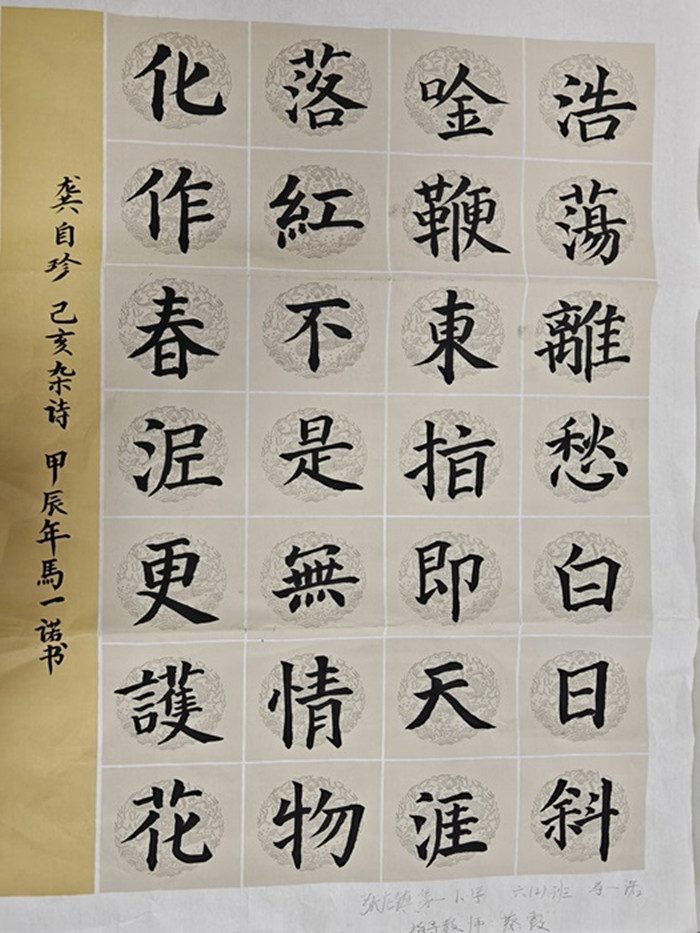 浩蕩離愁白日斜
唫鞭東指即天涯
落紅不是無情物
化作春泥更護花
龚自珍 己亥杂诗 甲辰年馬一诺书
六(2)班 马一诺
指导教师 蔡霞